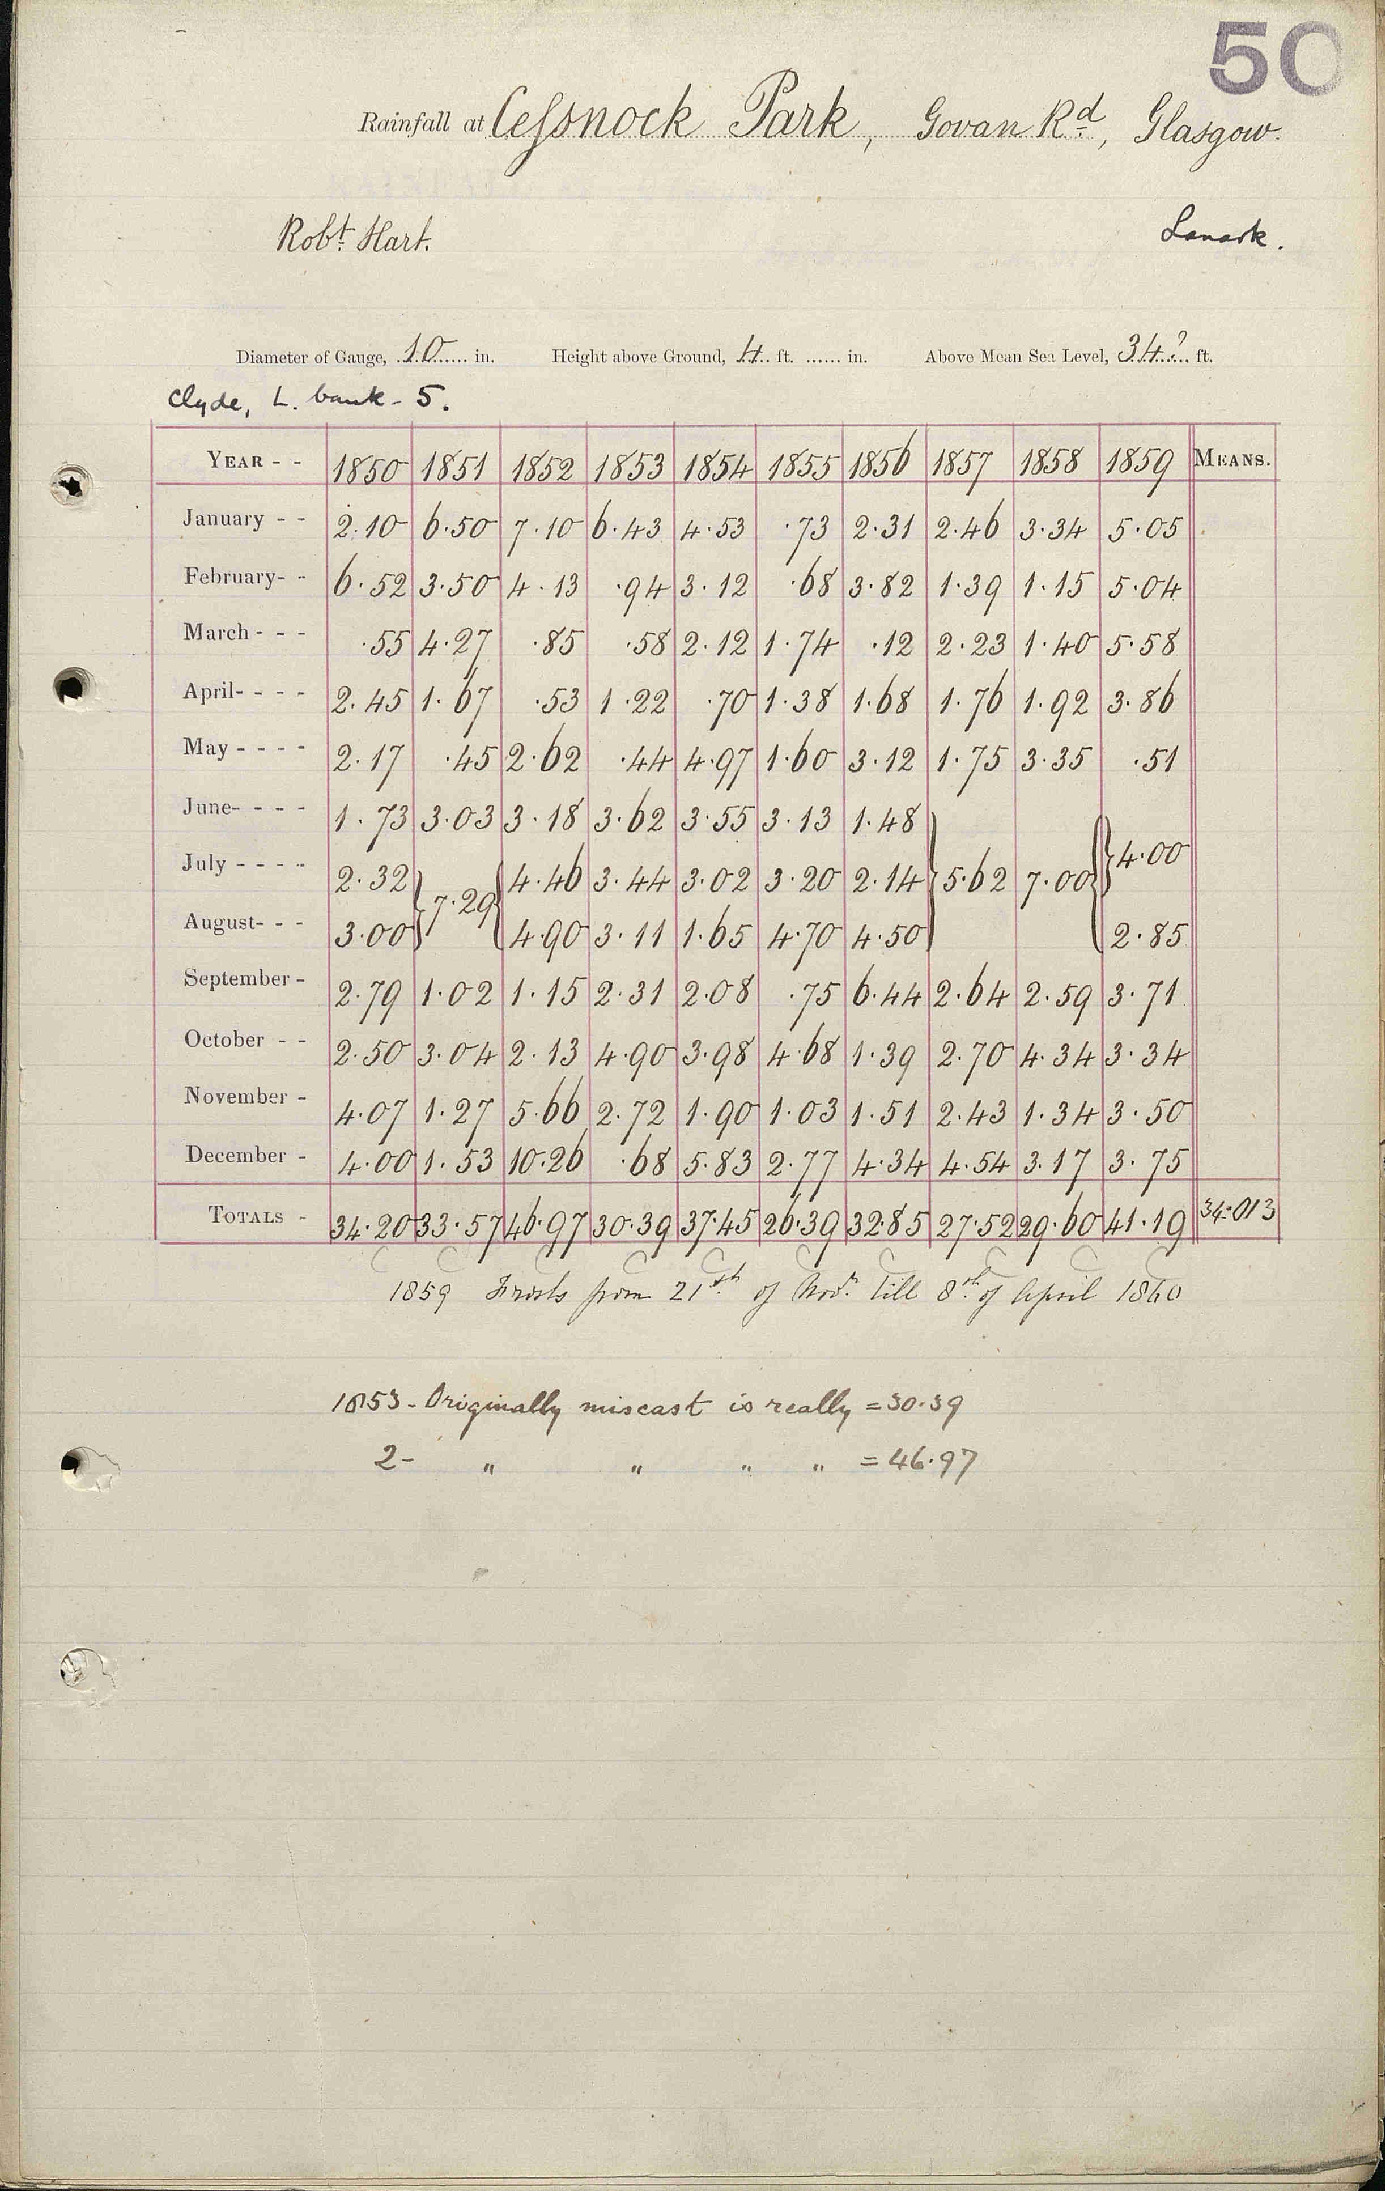 50
Rainfall at Cessnock Park, Govan Rd, Glasgow.
Robt Hart. Lanark.
Diameter of Gauge, 10 in. Height above Ground, 4 ft. ...... in. Above Mean Sea Level, 34? ft.
Clyde, L. bank - 5.
YEAR - - 1850 1851 1852 1853 1854 1855 1856 1857 1858 1859 MEANS.
January - - 2.10 6.50 7.10 6.43 4.53 .73 2.31 2.46 3.34 5.05
February- - 6.52 3.50 4.13 .94 3.12 .68 3.82 1.39 1.15 5.04
March - - - .55 4.27 .85 .58 2.12 1.74 .12 2.23 1.40 5.58
April- - - - 2.45 1.67 .53 1.22 .70 1.38 1.68 1.76 1.92 3.86
May - - - - 2.17 .45 2.62 .44 4.97 1.60 3.12 1.75 3.35 .51
June- - - - 1.73 3.03 3.18 3.62 3.55 3.13 1.48
July - - - - 2.32 } 7.29 { 4.46 3.44 3.02 3.20 2.14 } 5.62 7.00 { } 4.00
August- - - 3.00 4.90 3.11 1.65 4.70 4.50 2.85
September - 2.79 1.02 1.15 2.31 2.08 .75 6.44 2.64 2.59 3.71
October - - 2.50 3.04 2.13 4.90 3.98 4.68 1.39 2.70 4.34 3.34
November - 4.07 1.27 5.66 2.72 1.90 1.03 1.51 2.43 1.34 3.50
December - 4.00 1.53 10.26 .68 5.83 2.77 4.34 4.54 3.17 3.75
TOTALS - 34.20 33.57 46.97 30.39 37.45 26.39 32.85 27.52 29.60 41.19 34.013
C C C C C C C C C C
1859 Frosts from 21st of Novr. till 8th of April 1860
1853 - Originally miscast is really = 30.39
2 - " " " " = 46.97